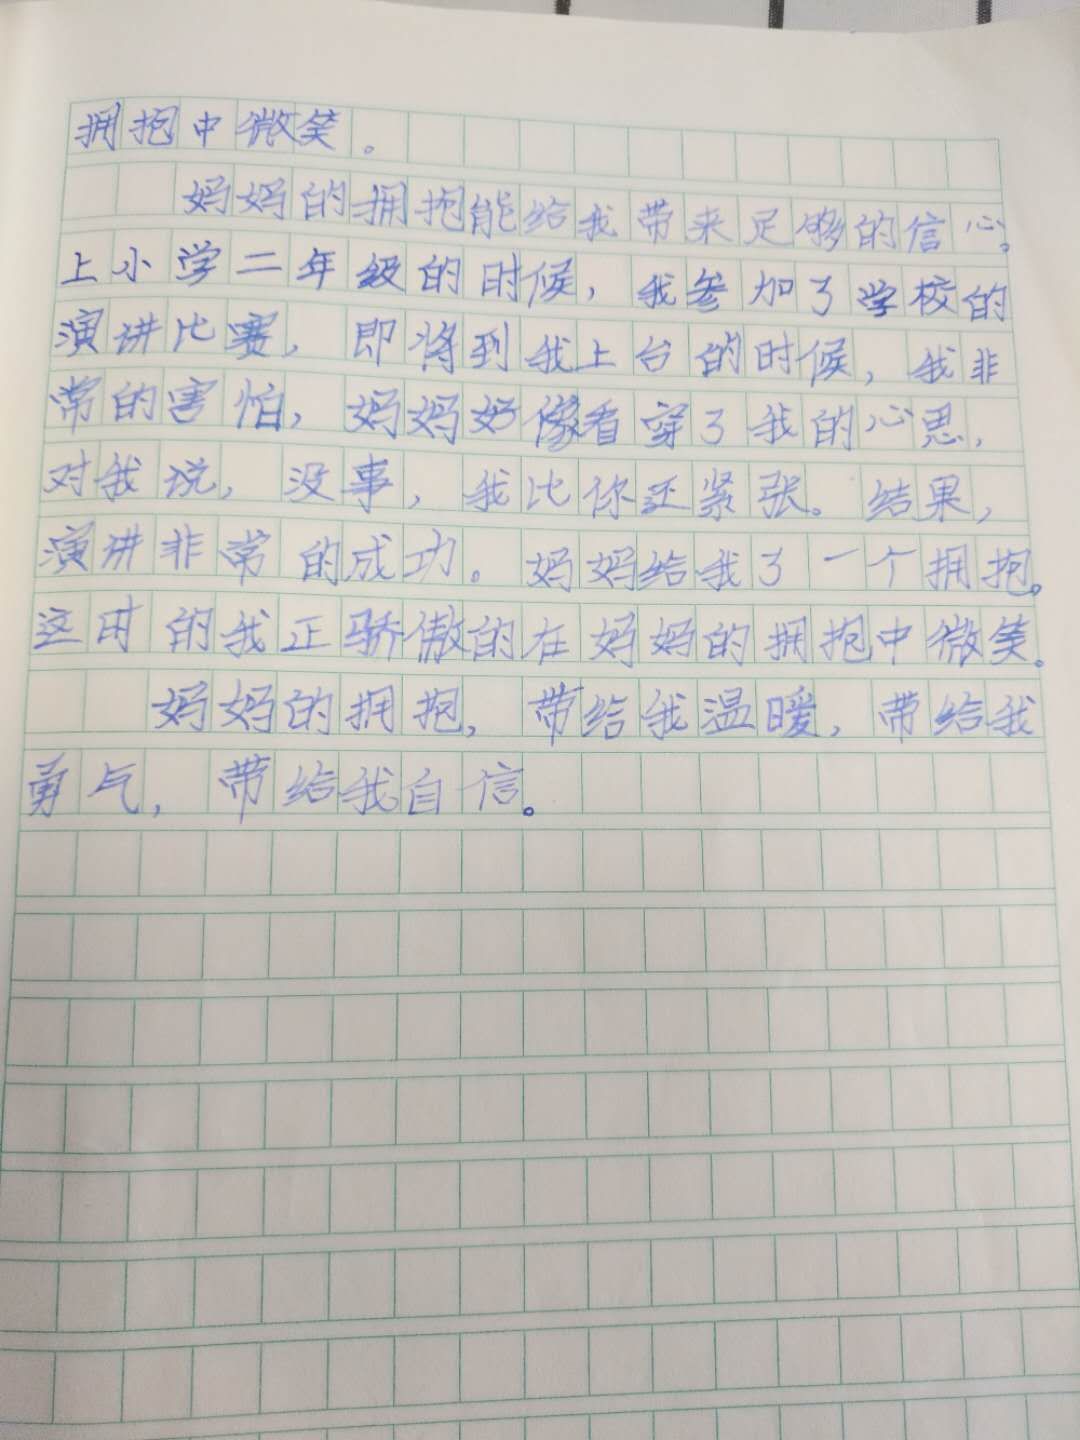 拥抱中微笑。
妈妈的拥抱能给我带来足够的信心。
上小学二年级的时候，我参加了学校的
演讲比赛，即将到我上台的时候，我非
常的害怕，妈妈好像看穿了我的心思，
对我说，没事，我比你还紧张。结果，
演讲非常的成功。妈妈给我了一个拥抱。
这时的我正骄傲的在妈妈的拥抱中微笑。
妈妈的拥抱，带给我温暖，带给我
勇气，带给我自信。